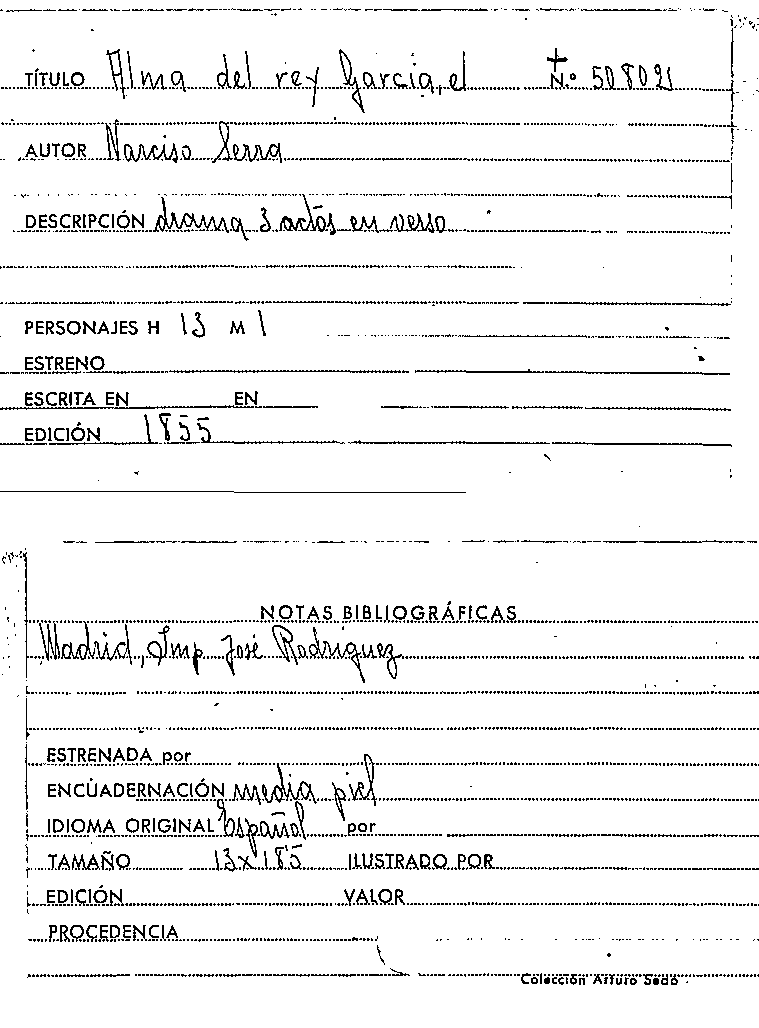 TÍTULO Alma del rey García, el N.º 508021
AUTOR Narciso Serra
DESCRIPCIÓN drama 3 actos en verso
PERSONAJES H 13 M 1
ESTRENO
ESCRITA EN EN
EDICIÓN 1855
NOTAS BIBLIOGRÁFICAS
Madrid, Imp. José Rodríguez
ESTRENADA por
ENCUADERNACIÓN media piel
IDIOMA ORIGINAL Español por
TAMAÑO 13x185 ILUSTRADO POR
EDICIÓN VALOR
PROCEDENCIA
Colección Arturo Sedó